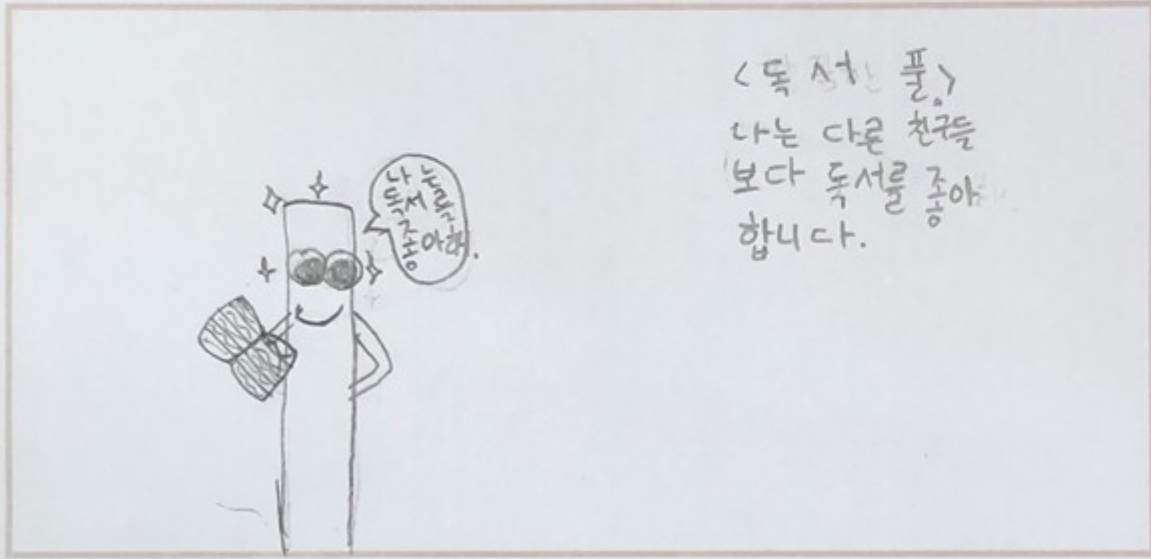 나는
독서를
좋아해.
<독서 풀.>
나는 다른 친구들
보다 독서를 좋아
합니다.